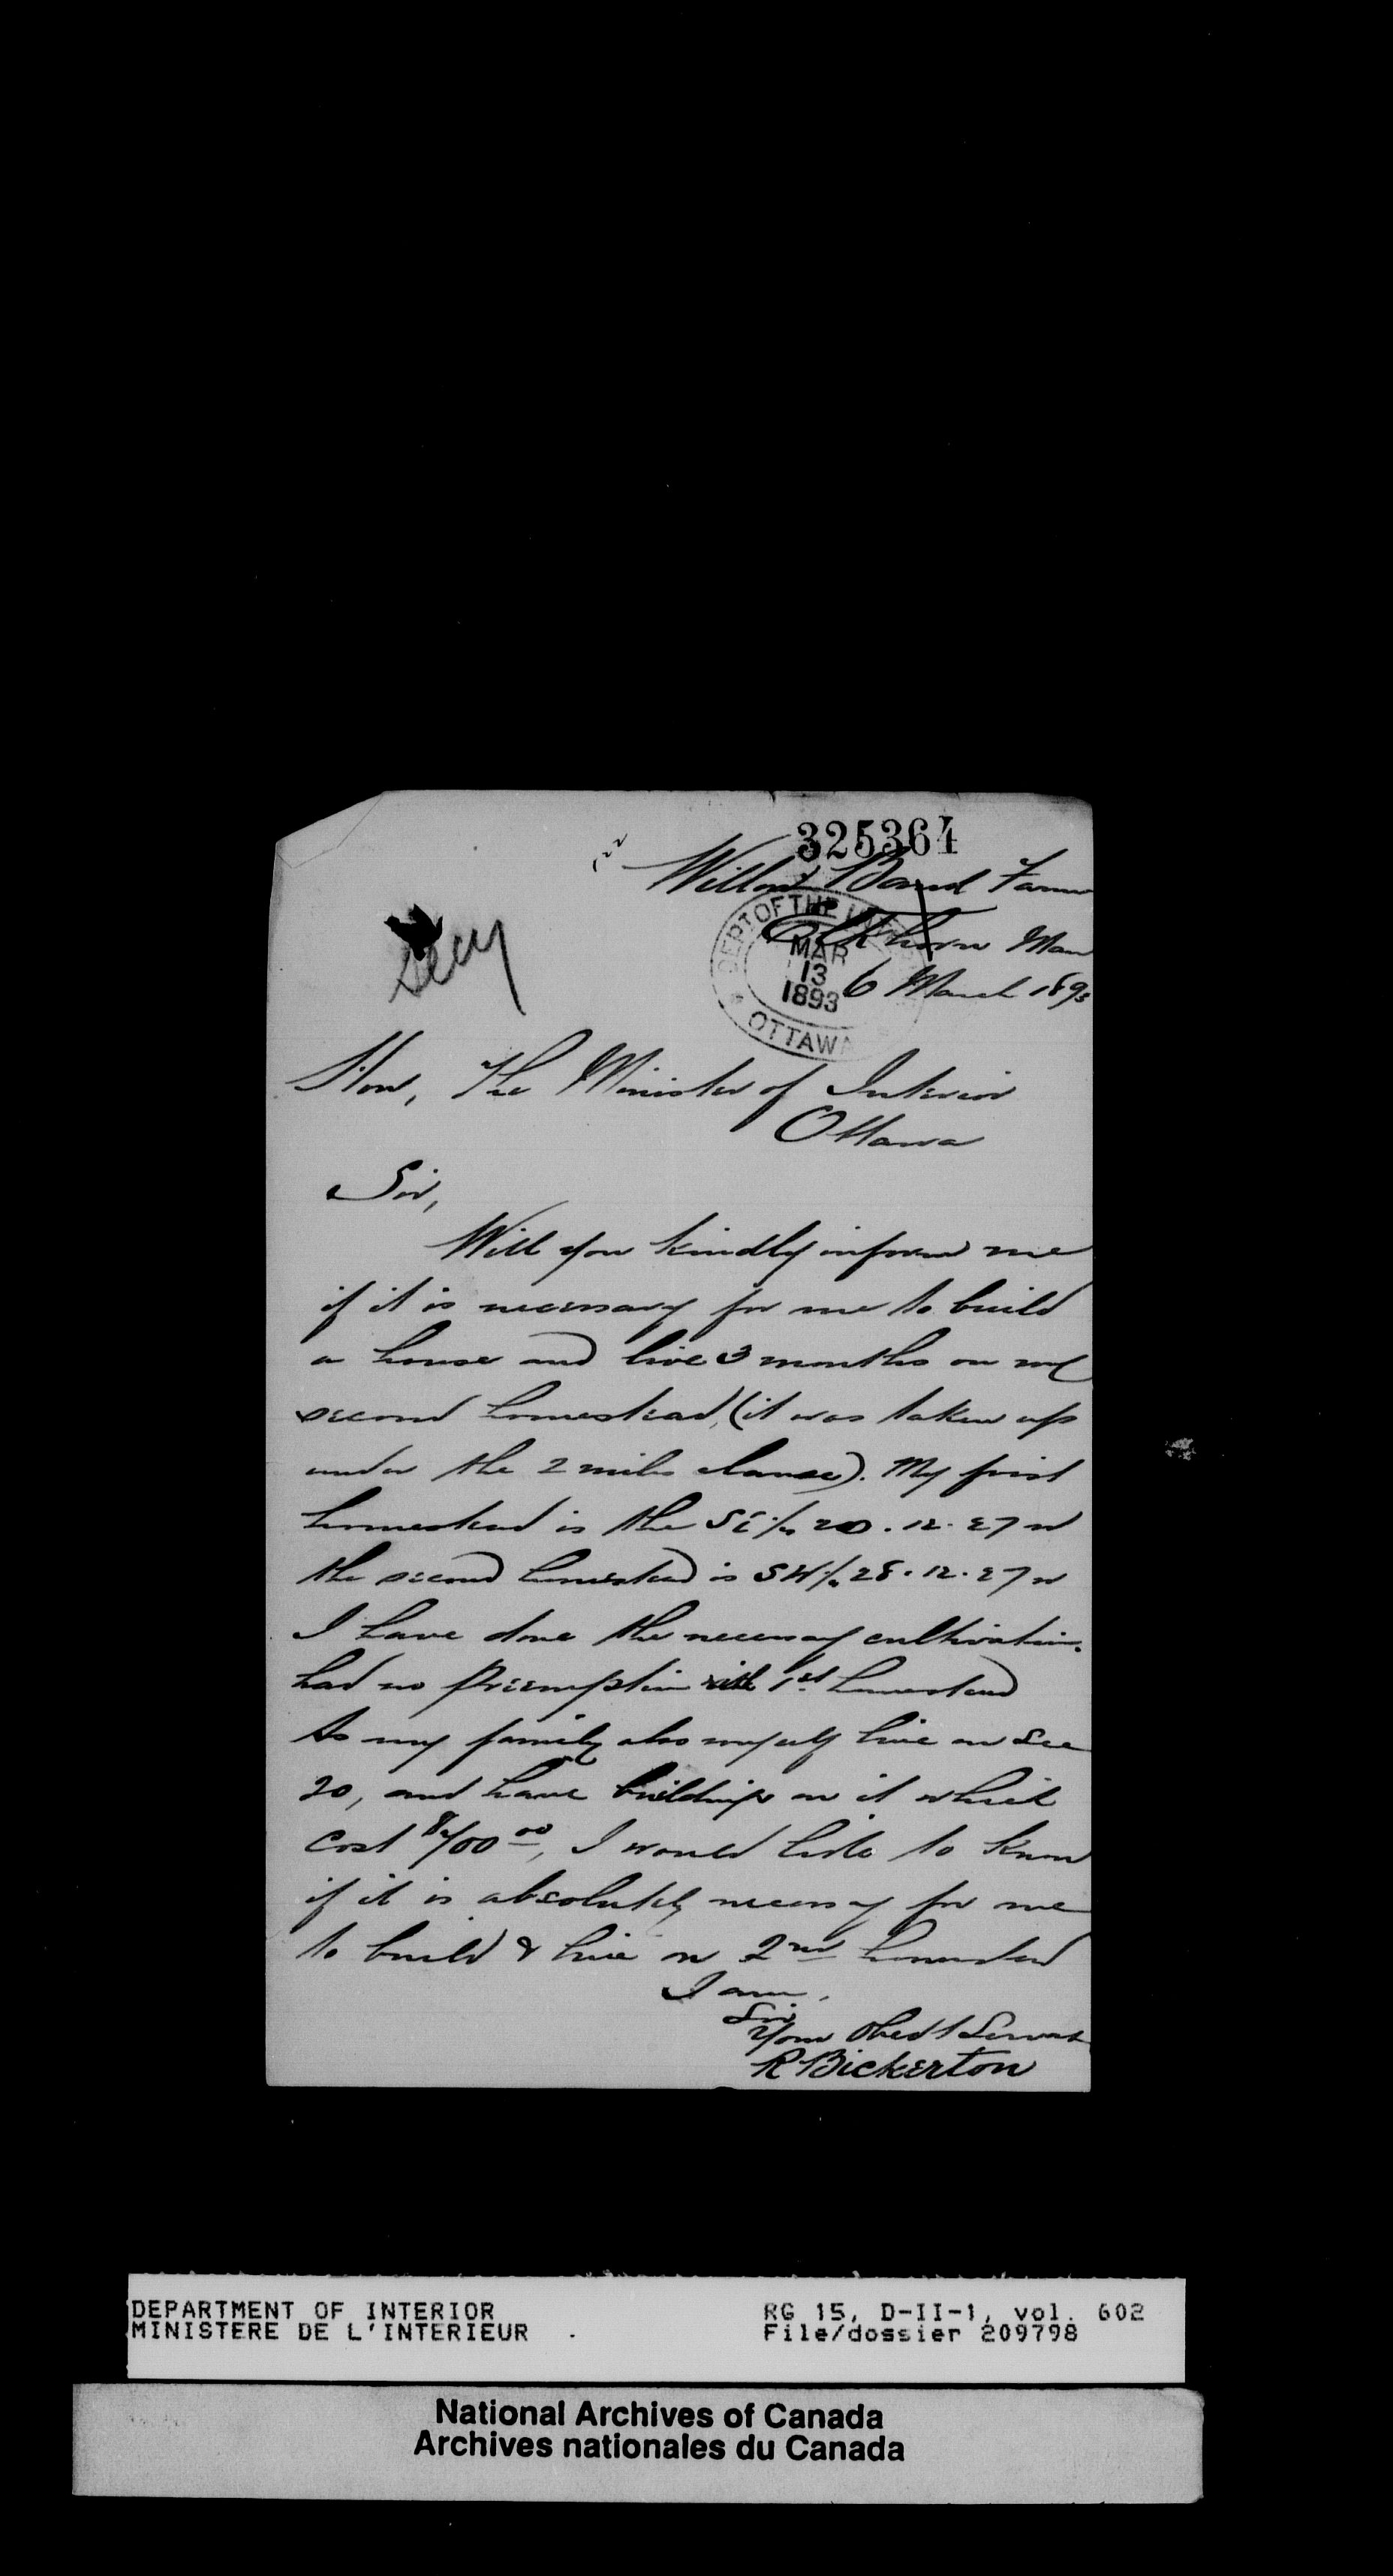 325364
Farm
Elkhorn Man
6 March 1893
DEPT OF THE INTERIOR
MAR
13
1893
OTTAWA
Secy
Hon, The Minister of Interior
Ottawa
Sir,
Will you kindly inform me
if it is necessary for me to build
a house and live 3 months on my
second homestead, (it was taken up
under the 2 miles clause). My first
homestead is the SE 1/4 20. 12. 27 w
the second homestead is SW 1/4 28. 12. 27 w
I have done the necessary cultivation.
had no Preemption with 1st homestead
As my family also myself live on Sec
20, and have buildings on it which
cost $700 00, I would like to know
if it is absolutely necessary for me
to build & live on 2nd homestead
I am,
Sir
Your Obedt Servant
R Bickerton
DEPARTMENT OF INTERIOR
MINISTERE DE L'INTERIEUR
RG 15, D-II-1, vol. 602
File/dossier 209798
National Archives of Canada
Archives nationales du Canada